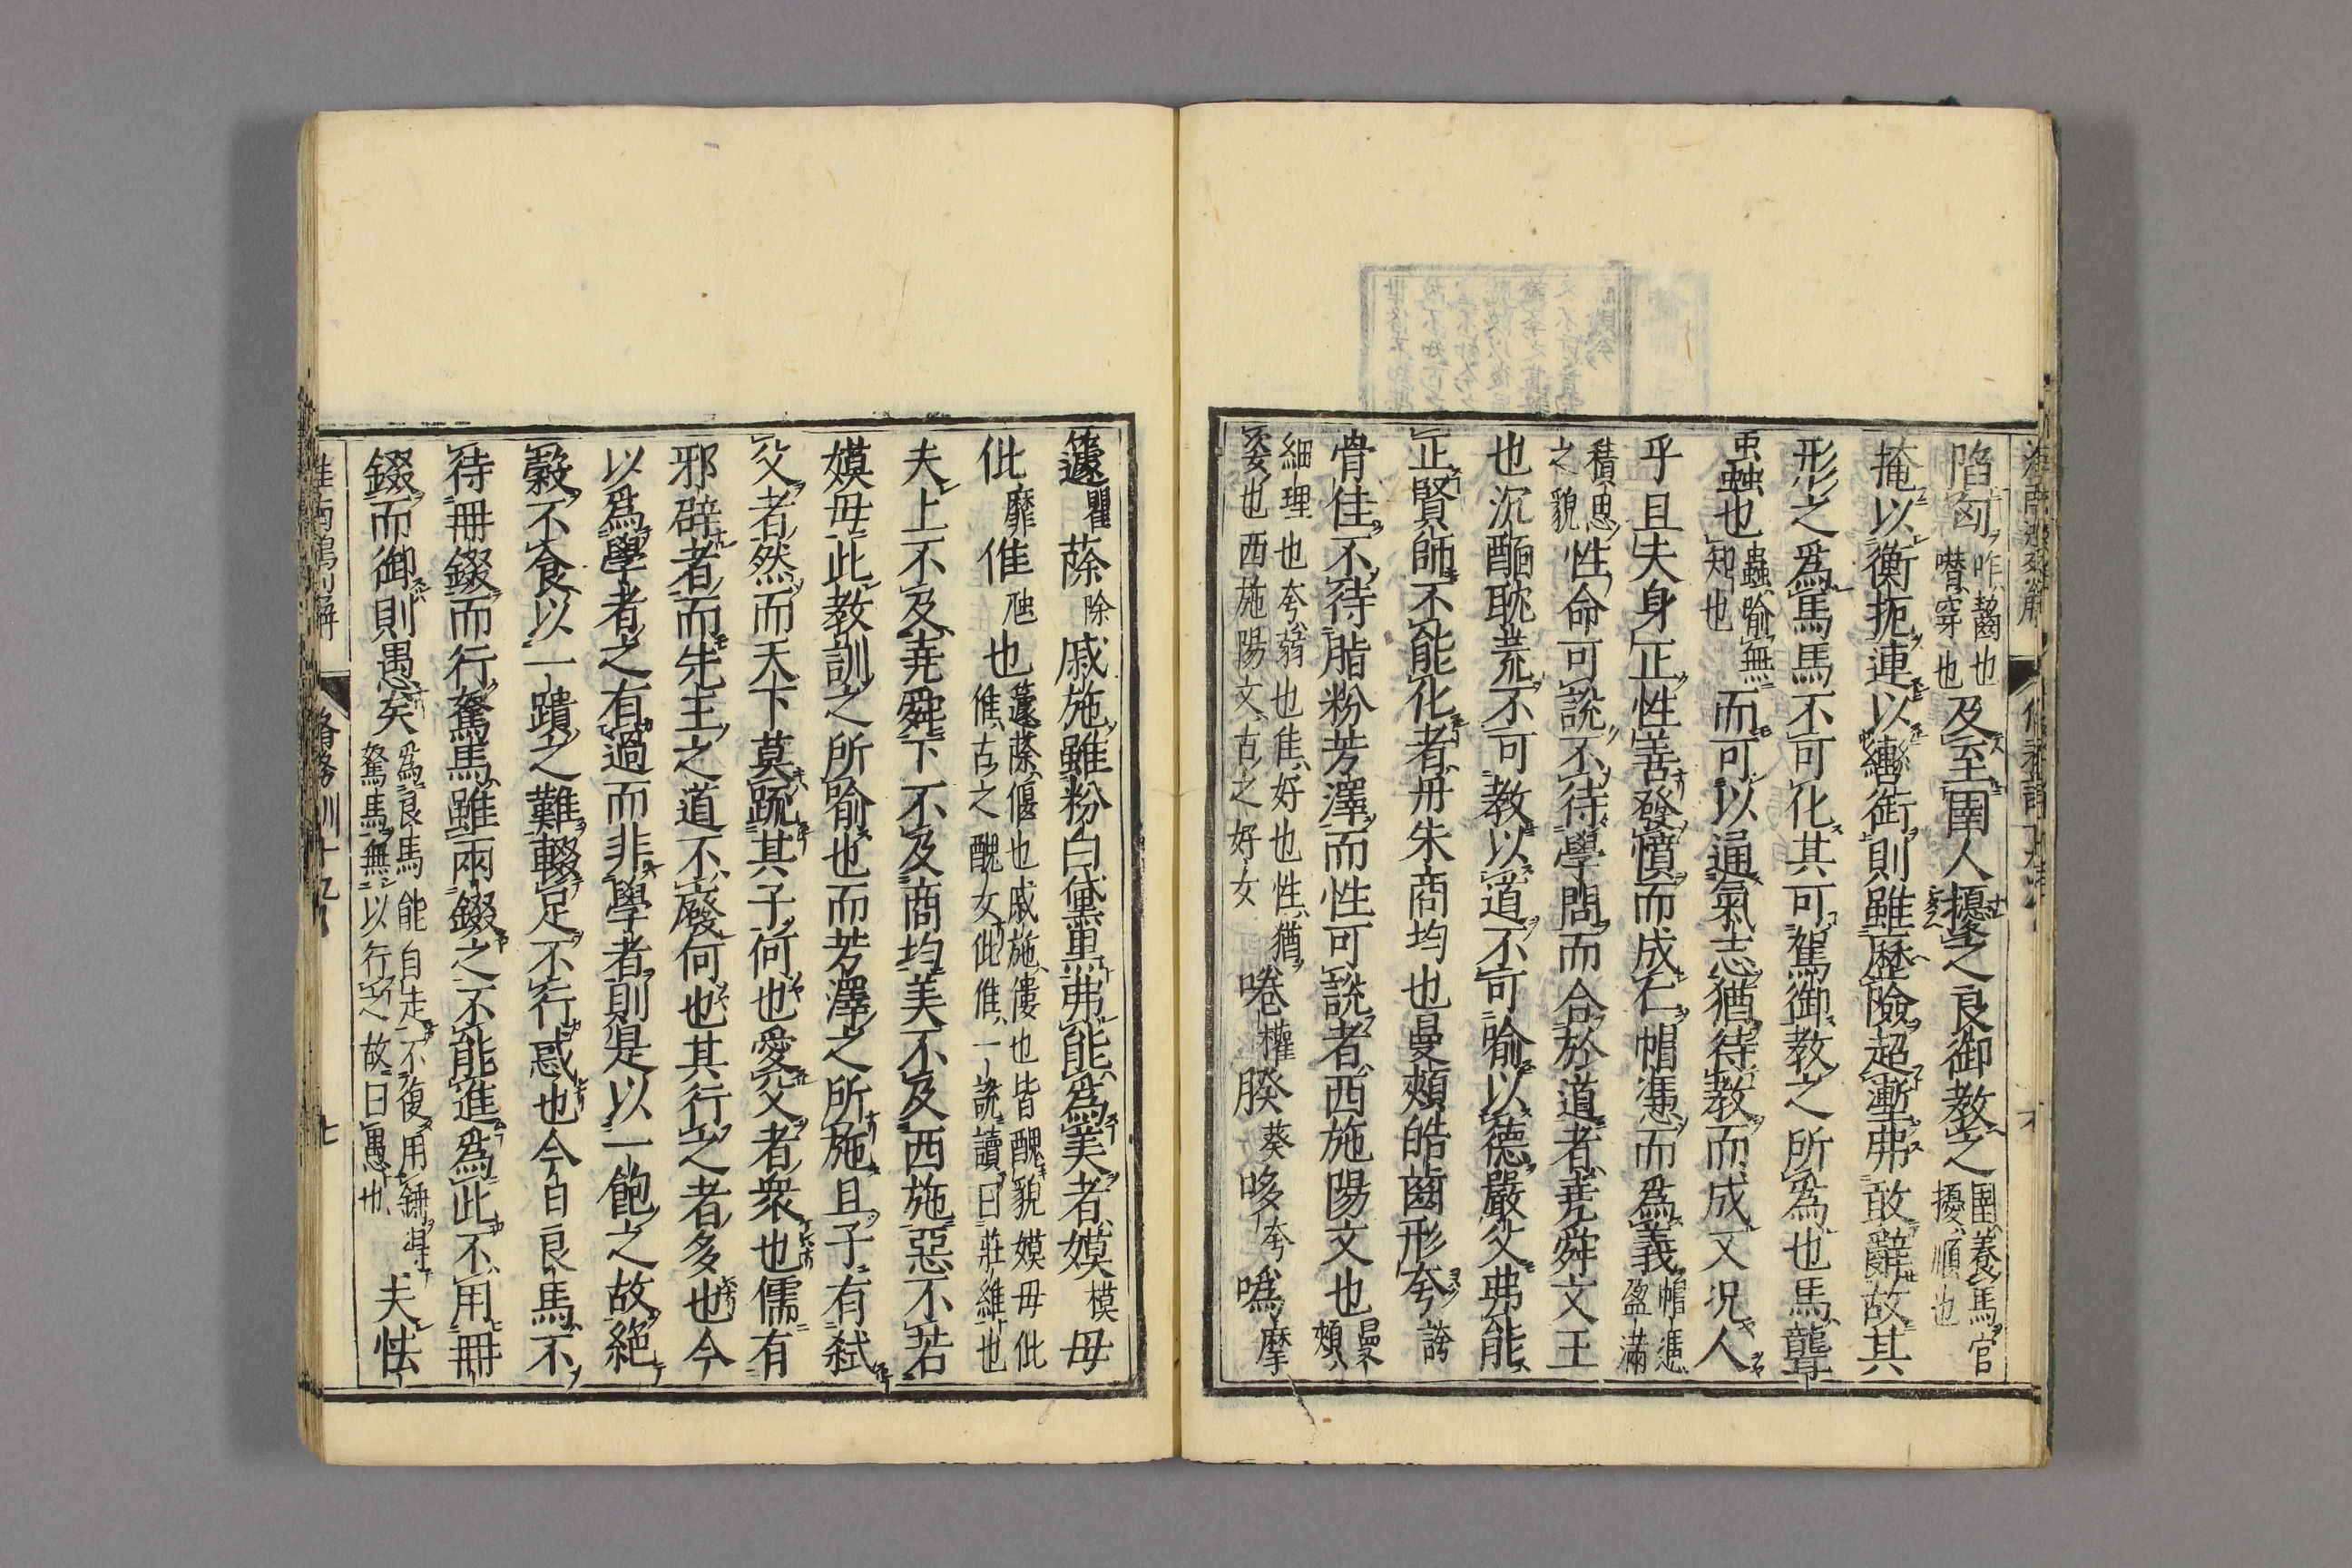 陷匈咋齧也㬱穿也及至圉人擾之良御教之圉養馬官擾順也
掩以衡扼連以轡銜則雖歷險超壍弗敢辭故其
形之爲馬馬不可化其可駕御教之所爲也馬聾
虫蟲也蟲喻無知也而可以通氣志猶待教而成又况人
乎且夫身正性善發憤而成仁帽慿而爲義帽慿盈滿
積思之貌性命可說不待學問而合於道者堯舜文王
也沉酾耽荒不可教以道不可喻以德嚴父弗能
正賢師不能化者丹朱商均也曼頰皓齒形夸誇
骨佳不待脂粉芳澤而性可說者西施陽文也曼頰
細理也夸弱也佳好也性猶姿也西施陽文古之好女
啳權朕葵哆夸噅摩
籧瞿蒢除戚施雖粉白黛黑弗能爲美者嫫模毋
仳靡倠𨈭也籧蒢偃也戚施僂也皆醜貌嫫毋仳倠古之醜女仳倠一說讀曰莊維也
夫上不及堯舜下不及商均美不及西施惡不若
嫫毋此教訓之所喻也而芳澤之所施且子有弒
父者然而天下莫䟽其子何也愛父者衆也儒有
邪辟者而先王之道不廢何也其行之者多也今
以爲學者之有過而非學者則是以一飽之故絕
穀不食以一蹪之難輟足不行惑也今日良馬不
待冊錣而行駑馬雖兩錣之不能進爲此不用冊
錣而御則愚矣爲良馬能自走不復用錘得駑馬無以行之故曰愚也夫怯
脩務訓十九
七